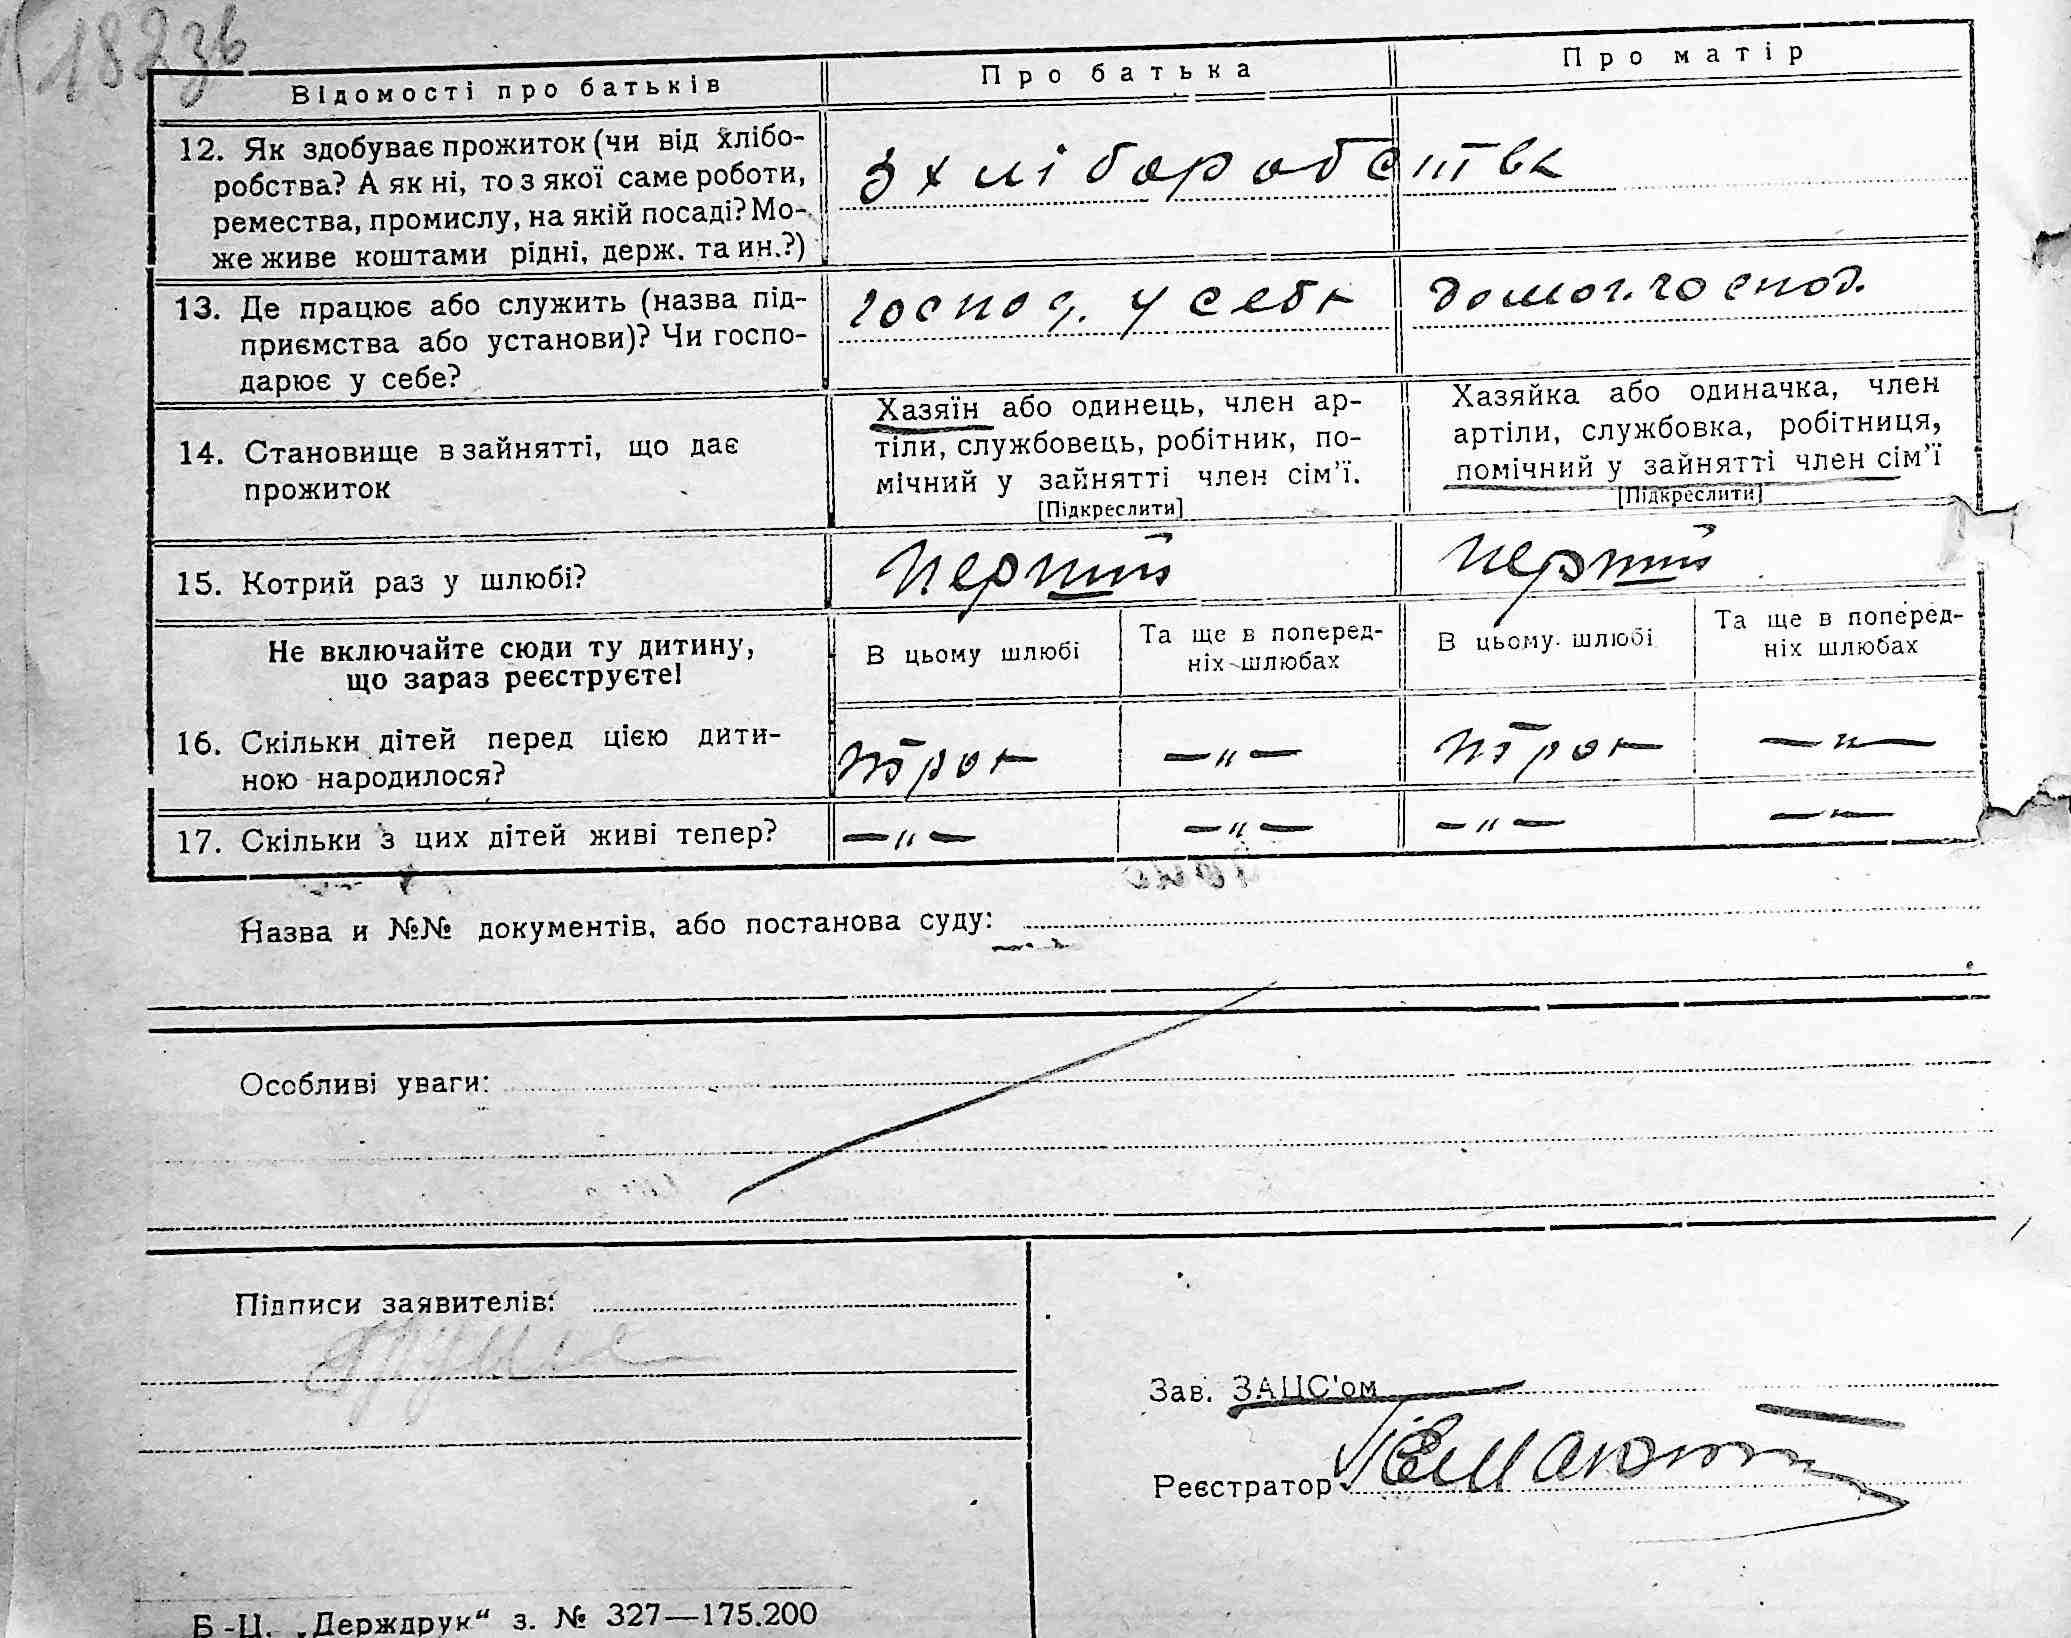 182зв
Відомості про батьків
Про батька
Про матір
12. Як здобуває прожиток (чи від хлібо-
робства? А як ні, то з якої саме роботи,
ремества, промислу, на якій посаді? Мо-
же живе коштами рідні, держ. та ин.?)
З хліборобства
13. Де працює або служить (назва під-
приємства або установи)? Чи госпо-
дарює у себе?
господ. у себе
домог. господ.
14. Становище в зайнятті, що дає
прожиток
Хазяїн або одинець, член ар-
тіли, службовець, робітник, по-
мічний у зайнятті член сім'ї.
[Підкреслити]
Хазяйка або одиначка, член
артіли, службовка, робітниця,
помічний у зайнятті член сім'ї
[Підкреслити]
15. Котрий раз у шлюбі?
перший
перший
Не включайте сюди ту дитину,
що зараз реєструєте!
В цьому шлюбі
Та ще в поперед-
ніх шлюбах
В цьому шлюбі
Та ще в поперед-
ніх шлюбах
16. Скільки дітей перед цією дити-
ною народилося?
—„—
—„—
17. Скільки з цих дітей живі тепер?
—„—
—„—
—„—
—„—
Назва и №№ документів, або постанова суду:
Особливі уваги:
Підписи заявителів:
Зав. ЗАЦС'ом
Реєстратор
Б-Ц. „Держдрук“ з. № 327—175.200